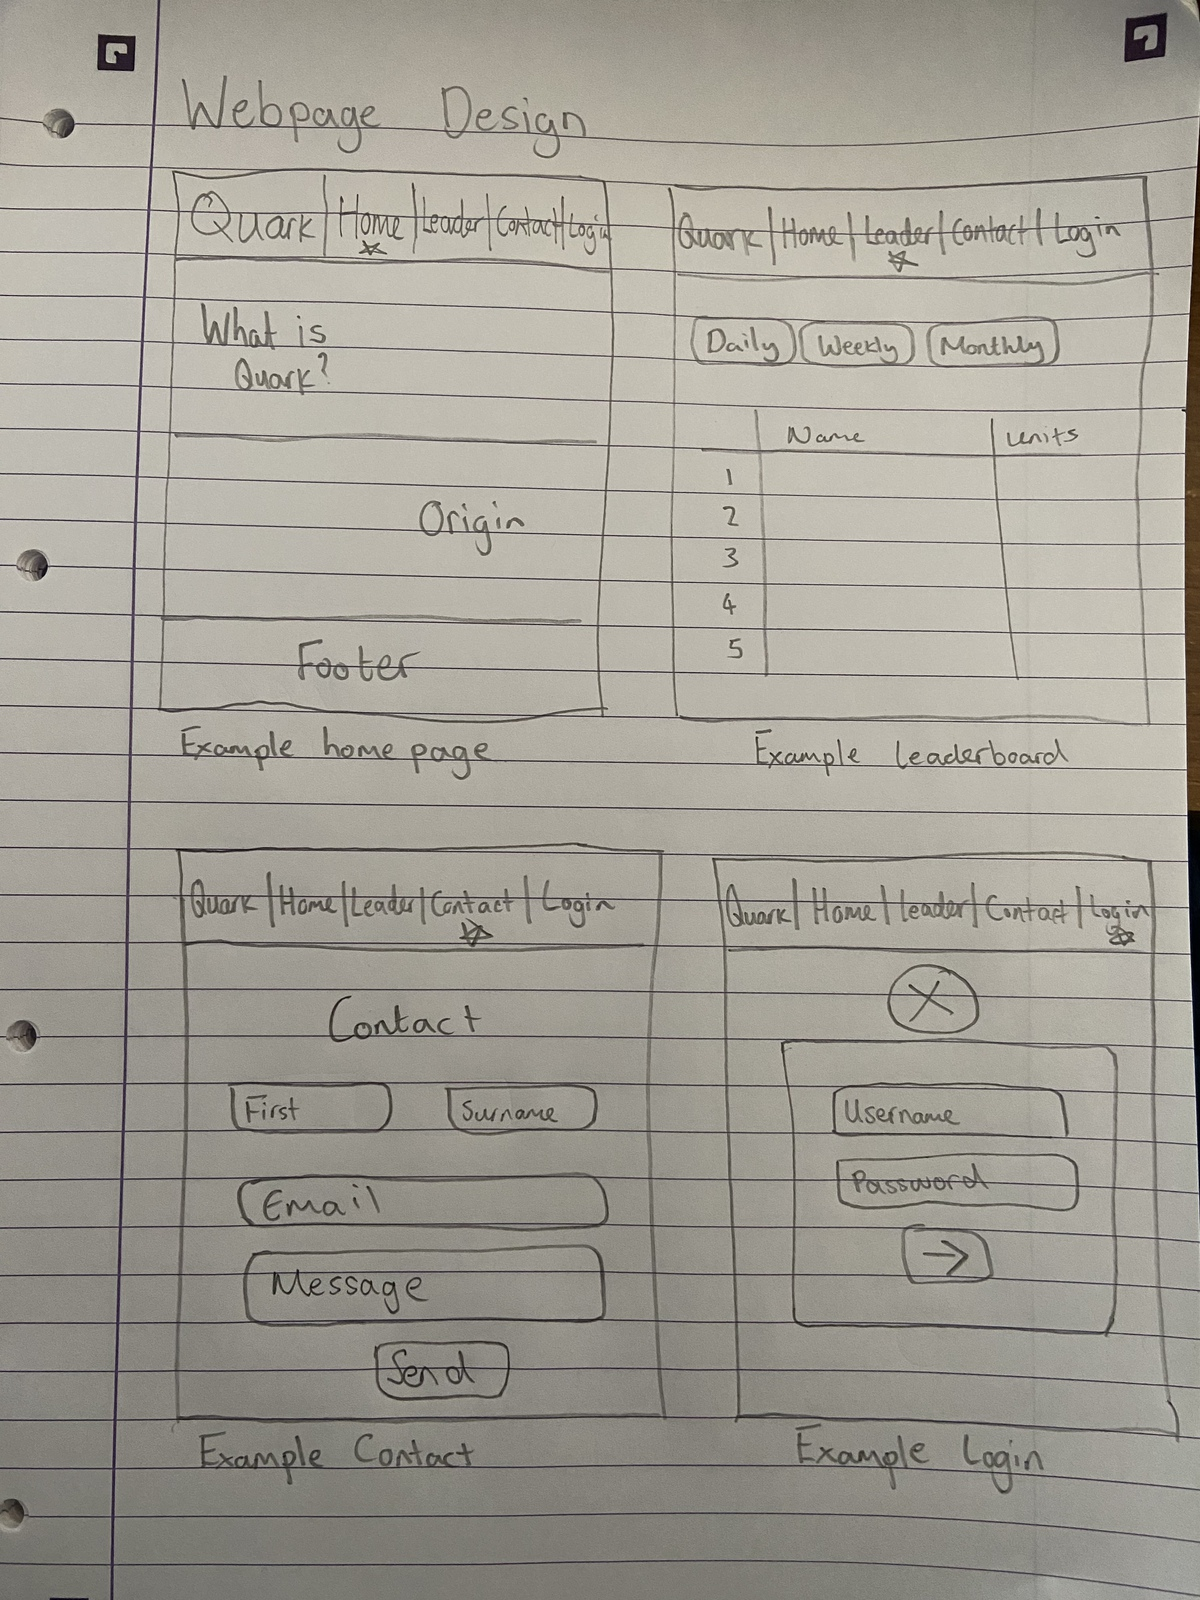 Webpage Design
Quark | Home | Leader | Contact | Login
What is
Quark?
Origin
Footer
Example home page
Quark | Home | Leader | Contact | Login
Daily Weekly Monthly
Name Units
1
2
3
4
5
Example leaderboard
Quark | Home | Leader | Contact | Login
Contact
First Surname
Email
Message
Send
Example Contact
Quark | Home | Leader | Contact | Login
X
Username
Password
→
Example Login